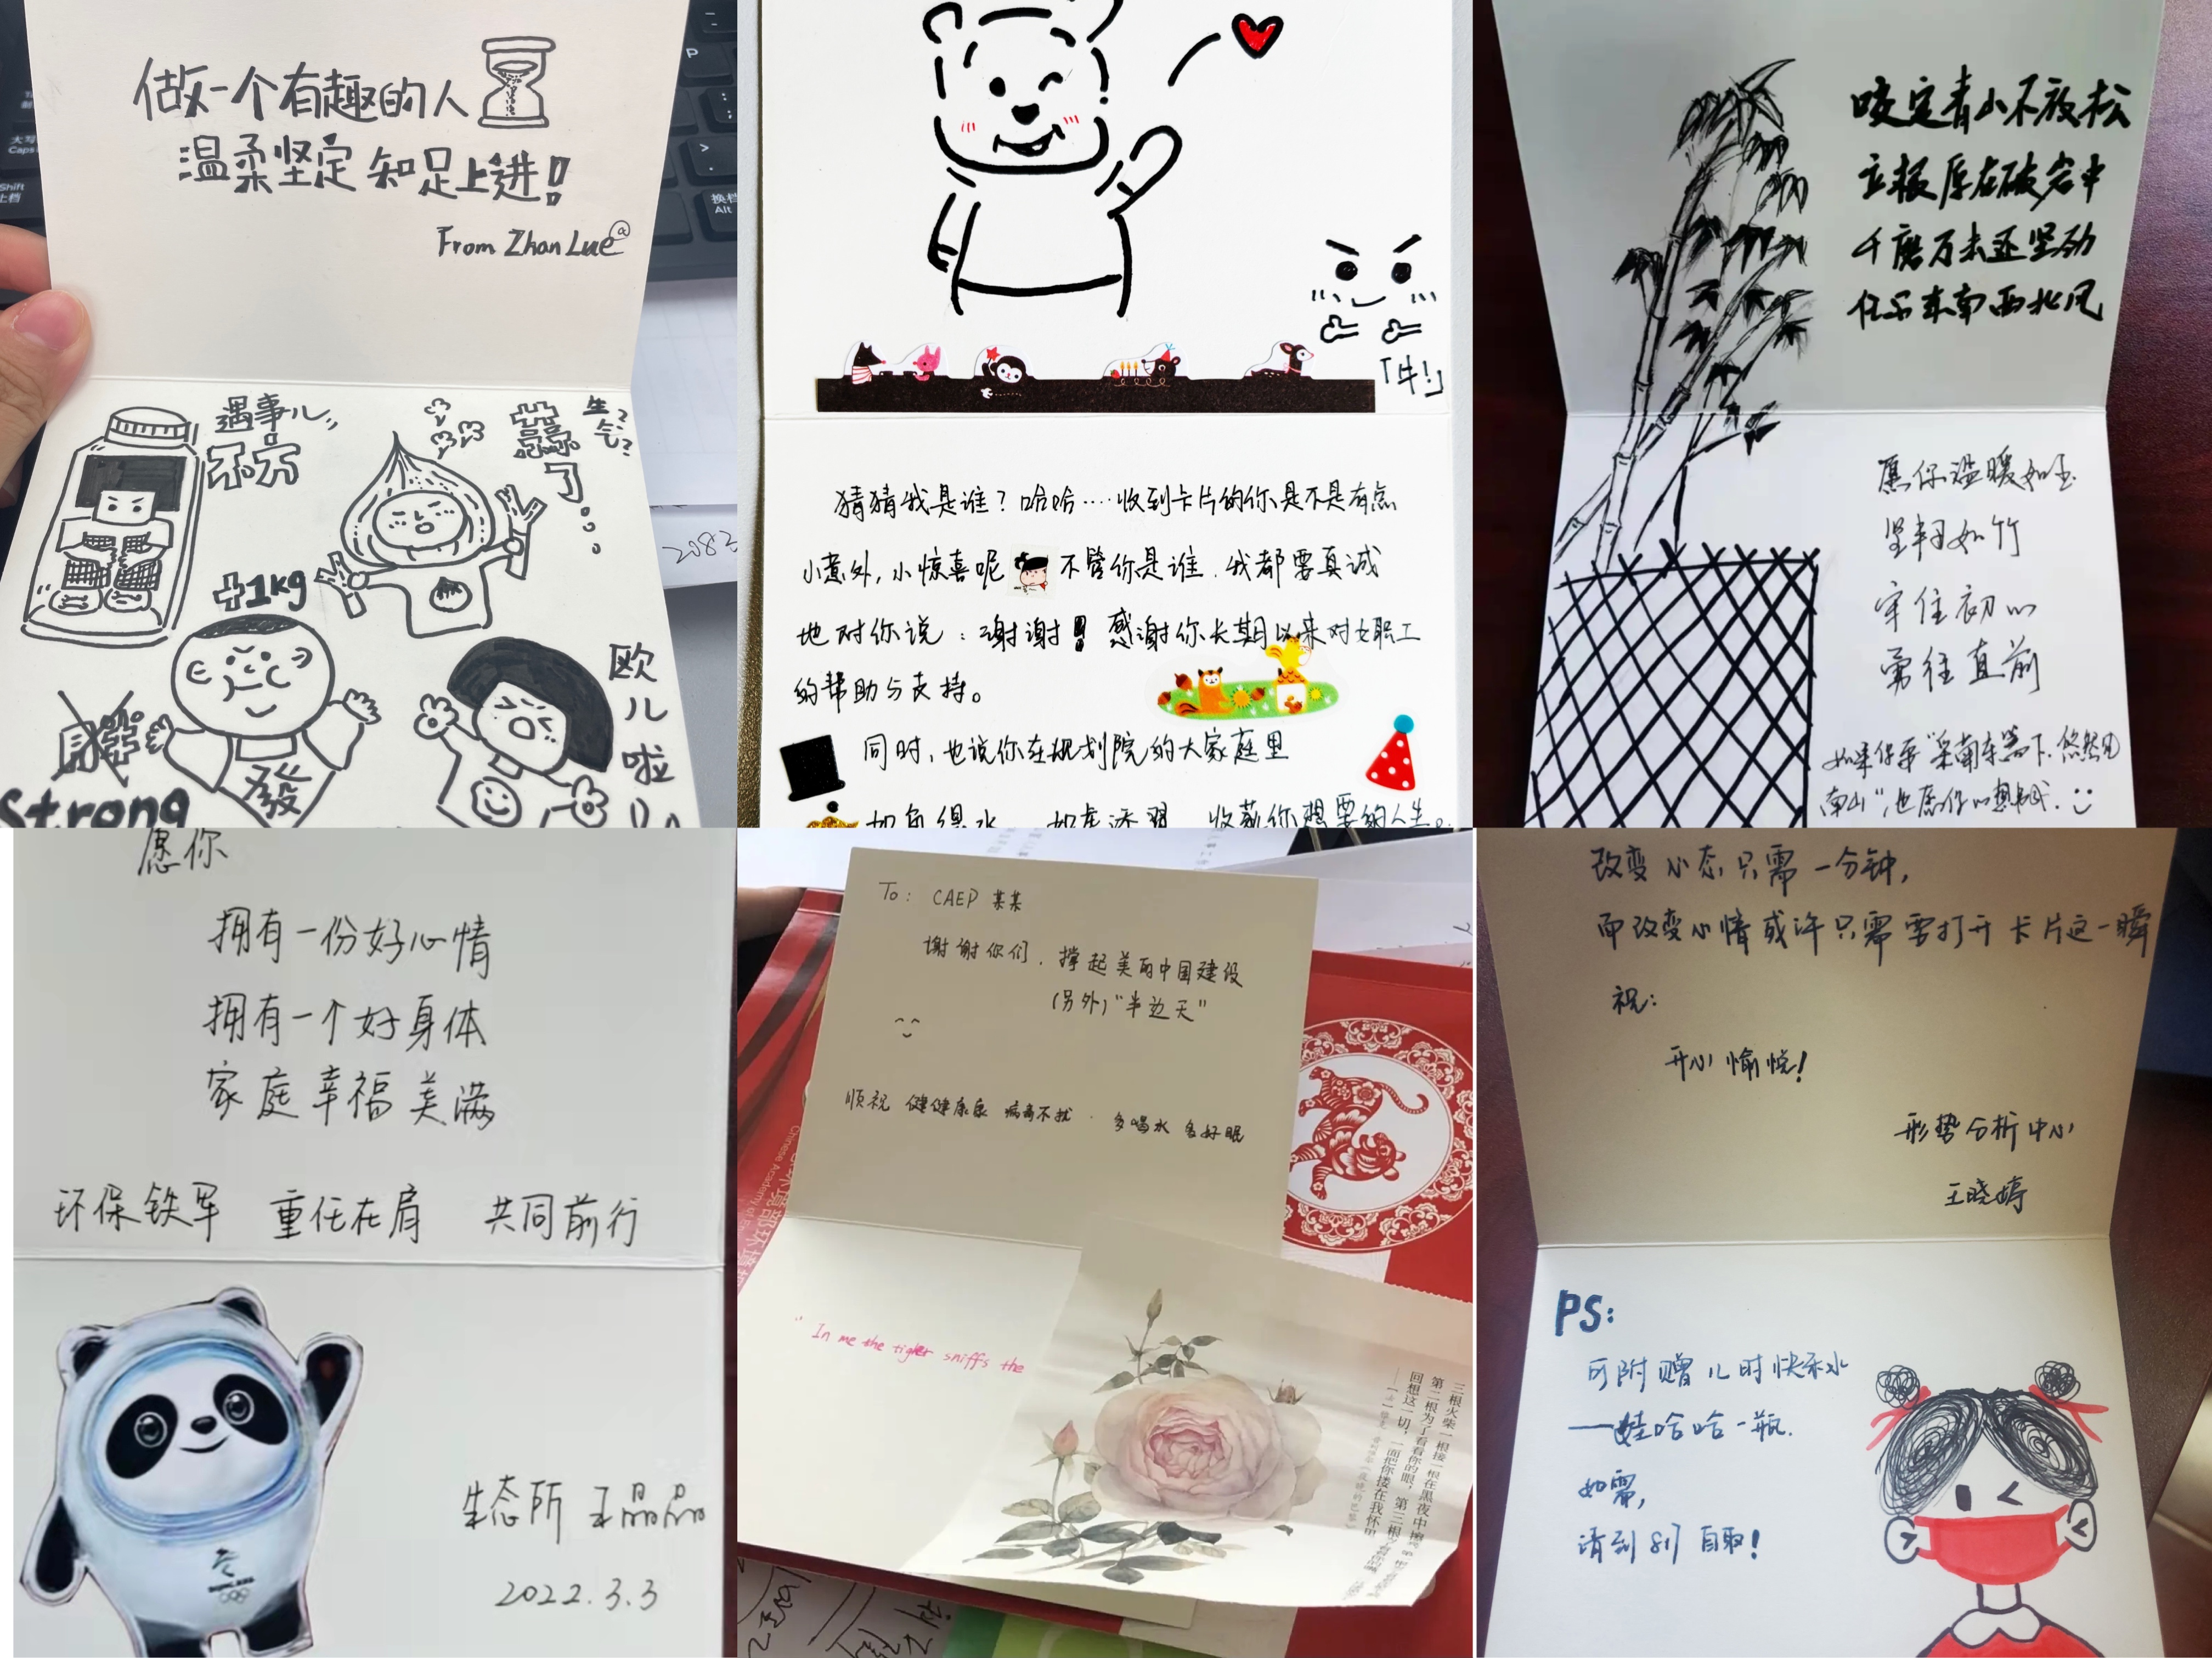 做一个有趣的人
温柔坚定 知足上进!
From Zhan Lue
遇事儿
不方
蒜了...
生气?
+1kg
Strong
發
欧儿啦
「牛!」
猜猜我是谁?哈哈····收到卡片的你是不是有点
小意外,小惊喜呢 不管你是谁,我都要真诚
地对你说:谢谢! 感谢你长期以来对女职工
的帮助与支持。
同时,也说你在规划院的大家庭里
如鱼得水 如虎添翼 收获你想要的人生。
咬定青山不放松
立根原在破岩中
千磨万击还坚劲
任尔东南西北风
愿你温暖如玉
坚韧如竹
守住初心
勇往直前
如果你要"采菊东篱下,悠然见
南山",也愿你心想事成.
愿你
拥有一份好心情
拥有一个好身体
家庭幸福美满
环保铁军 重任在肩 共同前行
生态所 王晶晶
2022.3.3
To: CAEP 某某
谢谢你们,撑起美丽中国建设
(另外)"半边天"
顺祝 健健康康 病毒不扰 · 多喝水 多好眠
"In me the tiger sniffs the
三根火柴一根接一根在黑夜中擦亮
第二根为了看看你的眼,第三根
回想这一切,一面把你搂在我怀里
改变心态只需一分钟,
而改变心情或许只需要打开卡片这一瞬
祝:
开心愉悦!
形势分析中心
王晓婷
PS:
可附赠儿时快乐水
——娃哈哈一瓶.
如需,
请到811自取!